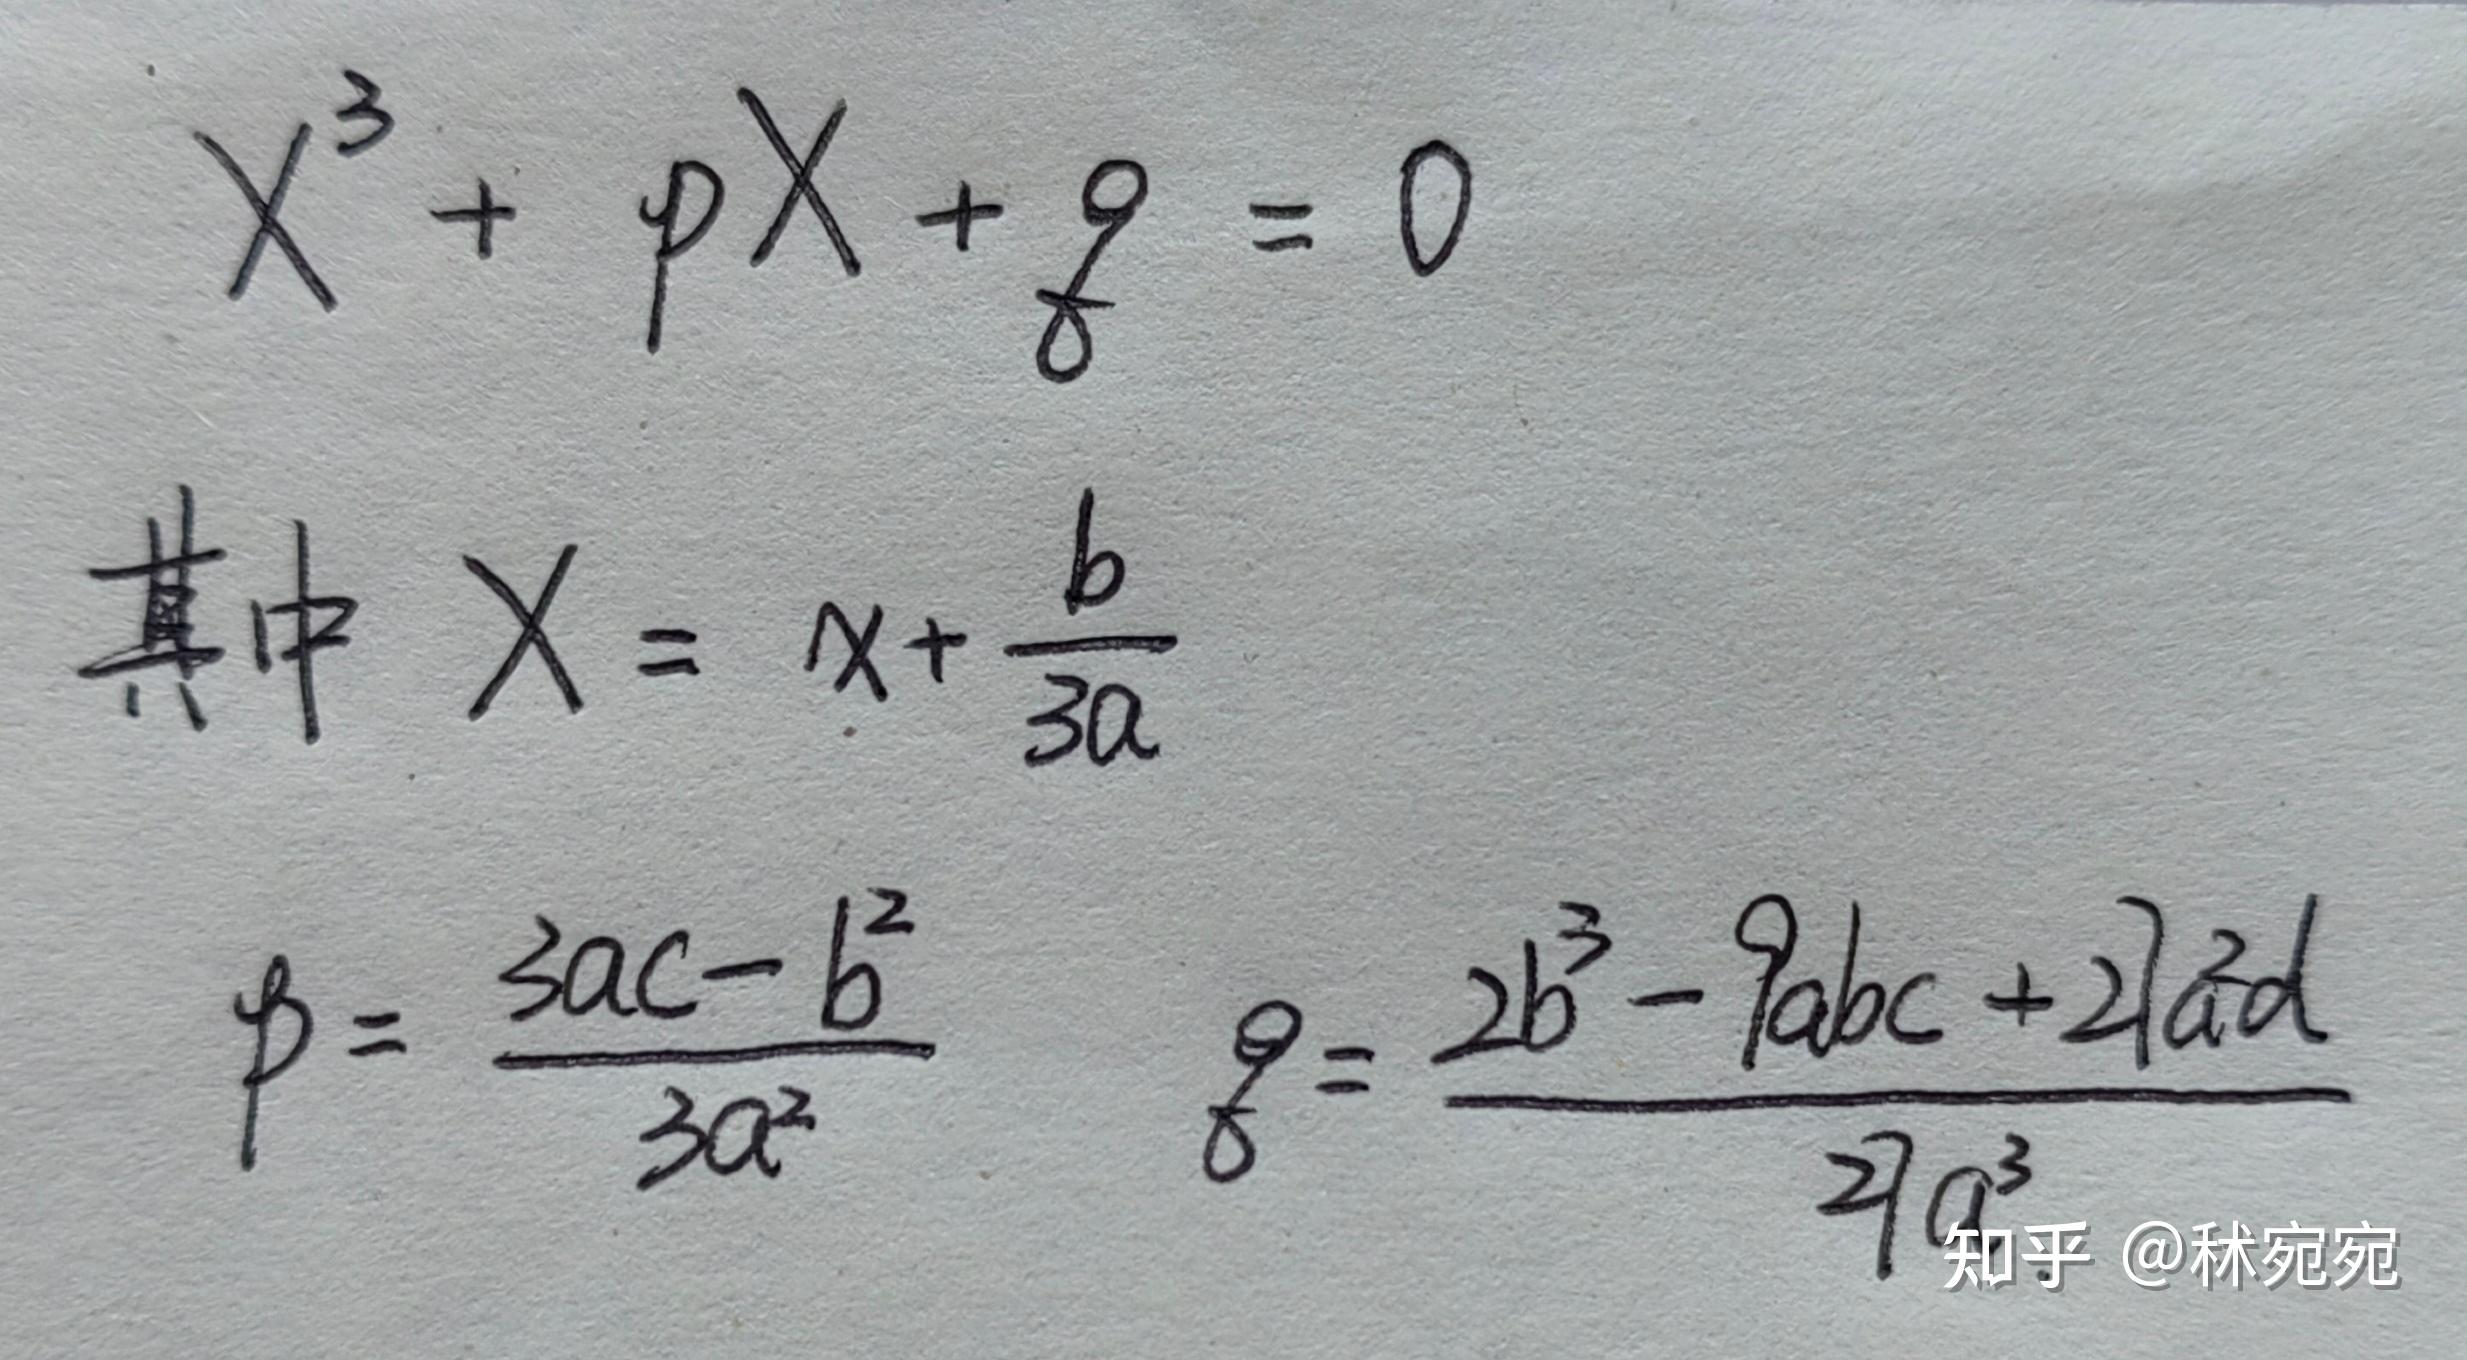 X³ + pX + q = 0
其中 X = x + b/3a
p = (3ac - b²)/3a² q = (2b³ - 9abc + 27a²d)/27a³
知乎 @秫宛宛